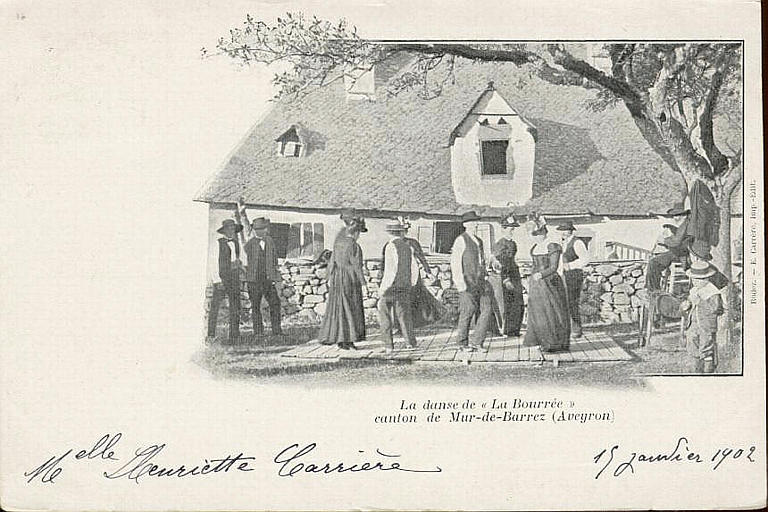 Rodez. — E. Carrère, Imp.-Edit.
La danse de « La Bourrée »
canton de Mur-de-Barrez (Aveyron)
Melle Henriette Carrière 15 janvier 1902